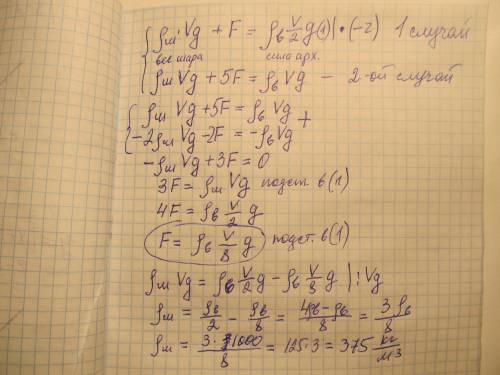 ρш·Vg + F = ρв V/2 g (1) |·(-2) 1 случай
вес шара сила арх.
ρшVg + 5F = ρвVg — 2-ой случай
ρшVg + 5F = ρвVg
-2ρшVg - 2F = -ρвVg +
-ρшVg + 3F = 0
3F = ρшVg подст. в (1)
4F = ρв V/2 g
F = ρв V/8 g подст. в (1)
ρшVg = ρв V/2 g - ρв V/8 g | : Vg
ρш = ρв/2 - ρв/8 = 4ρв-ρв/8 = 3ρв/8
ρш = 3·1000/8 = 125·3 = 375 кг/м3